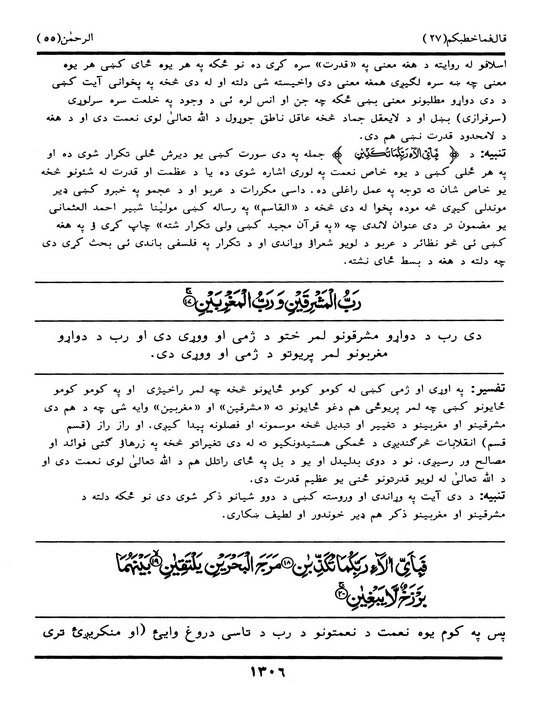 قال‌فما‌خطبکم(۲۷) الرحمٰن(۵۵)
اسلافو له روایته د هغه معنی په «قدرت» سره کړی ده نو ځکه په هر یوه ځای کښی هر یوه
معنی چه ښه سره لګیږی همغه معنی دی واخیسته شی دلته او له دی څخه په پخوانی آیت کښی
د دی دواړو مطلبونو معنی بښی ځکه چه جن او انس لره ئی د وجود په خلعت سره سرلوړی
(سرفرازی) بښل او د لایعقل جماد څخه عاقل ناطق جوړول د الله تعالیٰ لوی نعمت دی او د هغه
د لامحدود قدرت نښی هم دی.
تنبیه: د ﴿ فَبِأَيِّ الَآءِ رَبِّكُمَا تُكَذِّبٰنِ ﴾ جمله په دی سورت کښی یو دیرش ځلی تکرار شوی ده او
په هر ځلی کښی د یوه خاص نعمت په لوری اشاره شوی ده یا د عظمت او قدرت له شئونو څخه
یو خاص شان ته توجه په عمل راغلی ده. داسی مکررات د عربو او عجمو په خبرو کښی ډیر
موندلی کیږی څه موده پخوا له دی څخه د «القاسم» په رساله کښی مولیٰنا شبیر احمد العثمانی
یو مضمون تر دی عنوان لاندی چه «په قرآن مجید کښی ولی تکرار شته» چاپ کړی ؤ په هغه
کښی ئی څو نظائر د عربو د لویو شعراؤ وړاندی او د تکرار په فلسفی باندی ئی بحث کړی دی
چه دلته د هغه د بسط ځای نشته.
رَبُّ الْمَشْرِقَيْنِ وَ رَبُّ الْمَغْرِبَيْنِ ⑰
دی رب د دواړو مشرقونو لمر ختو د ژمی او ووړی دی او رب د دواړو
مغربونو لمر پریوتو د ژمی او ووړی دی.
تفسیر: په اوړی او ژمی کښی له کومو کومو ځایونو څخه چه لمر راخیژی او په کومو کومو
ځایونو کښی چه لمر پریوځی هم دغو ځایونو ته «مشرقین» او «مغربین» وایه شی چه د هم دی
مشرقینو او مغربینو د تغییر او تبدیل څخه موسمونه او فصلونه پیدا کیږی. او راز راز (قسم
قسم) انقلابات څرګندیږی د ځمکی هستیدونکیو ته له دی تغیراتو څخه په زرهاؤ ګتی فوائد او
مصالح ور رسیږی. نو د دوی بدلیدل او یو د بل په ځای راتلل هم د الله تعالیٰ لوی نعمت دی او
د الله تعالیٰ له لویو قدرتونو څنی یو عظیم قدرت دی.
تنبیه: د دی آیت په وړاندی او وروسته کښی د دوو شیانو ذکر شوی دی نو ځکه دلته د
مشرقینو او مغربینو ذکر هم ډیر خوندور او لطیف ښکاری.
فَبِأَيِّ الَآءِ رَبِّكُمَا تُكَذِّبٰنِ ⑱ مَرَجَ الْبَحْرَيْنِ يَلْتَقِيٰنِ ⑲ بَيْنَهُمَا
بَرْزَخٌ لَّا يَبْغِيٰنِ ⑳
پس په کوم یوه نعمت د نعمتونو د رب د تاسی دروغ وایئ (او منکریږئ تری
۱۳۰۶